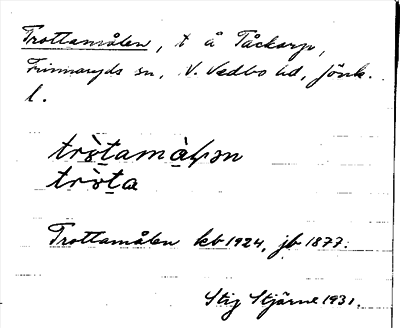 Trottamålen, t å Tåckarp,
Frinnaryds sn, N. Vedbo hd, Jönk.
l.
tròtamàLən
tròta
Trottamålen kb 1924, jb 1877.
Stig Stjärne 1931.